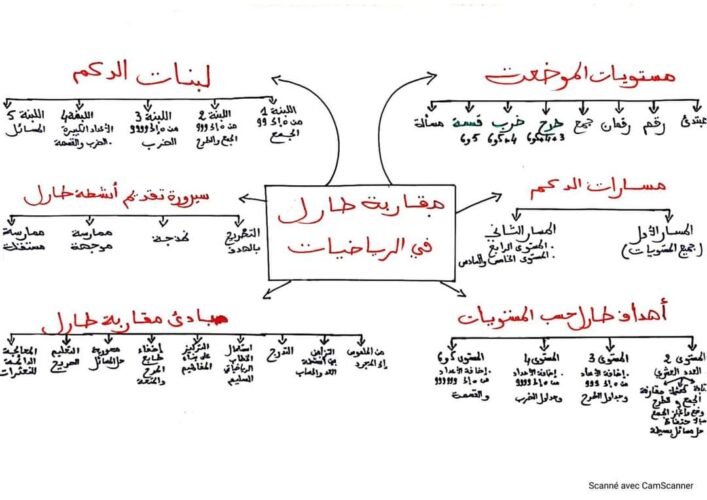 مستويات الموضعت
مبتدئ
رقم
رقمان
جمع
طرح
3+4+5و6
ضرب
4+5و6
قسمة
5و6
مسألة
لبنات الدعم
اللبنة 1
من 0 إلى 99
الجمع
اللبنة 2
من 0 إلى 999
الجمع والطرح
اللبنة 3
من 0 إلى 9999
الضرب
اللبنة 4
الأعداد الكبيرة
الضرب والقسمة
اللبنة 5
المسائل
مقاربة طارل
في الرياضيات
مسارات الدعم
المسار الأول
(جميع المستويات)
المسار الثاني
. المستوى الرابع
. المستوى الخامس والسادس
سيرورة تقديم أنشطة طارل
التصريح
بالهدف
نمذجة
ممارسة
موجهة
ممارسة
مستقلة
أهداف طارل حسب المستويات
المستوى 2
العدد العشري
كتابة مقارنة
الجمع و الطرح
الجمع
بالاحتفاظ
حل مسائل بسيطة
المستوى 3
. إضافة الأعداد
من 0 إلى 999
وجداول الطرح
المستوى 4
. إضافة الأعداد
من 0 إلى 9999
وجداول الضرب
المستوى 5و6
. إضافة الأعداد
من 0 إلى 999999
والقسمة
مبادئ مقاربة طارل
من الملموس
إلى المجرد
التوازن
بين أنشطة
العد والحساب
التدرج
استعمال
الخطاب
الرياضياتي
السليم
التركيز
على بناء
المفاهيم
إضفاء
طابع
المرح
والمتعة
سيرورة
حل المسائل
التعليم
الصريح
المعالجة
الداعمة
للتعثرات
Scanné avec CamScanner